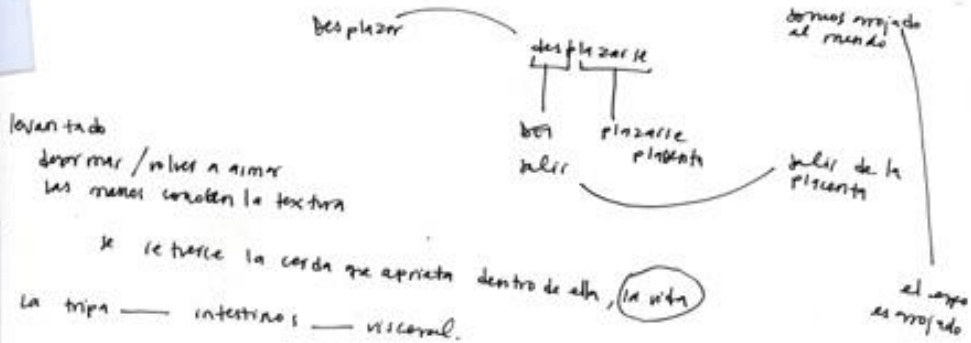 Desplazar
somos arrojado
al mundo
desplazarse
des
salir
plazarse
placenta
salir de la
placenta
levantado
desarmar / volver a armar
las manos conocen la textura
se retuerce la cerda que aprieta dentro de ella, la vida
La tripa — intestinos — visceral.
el
es arrojado